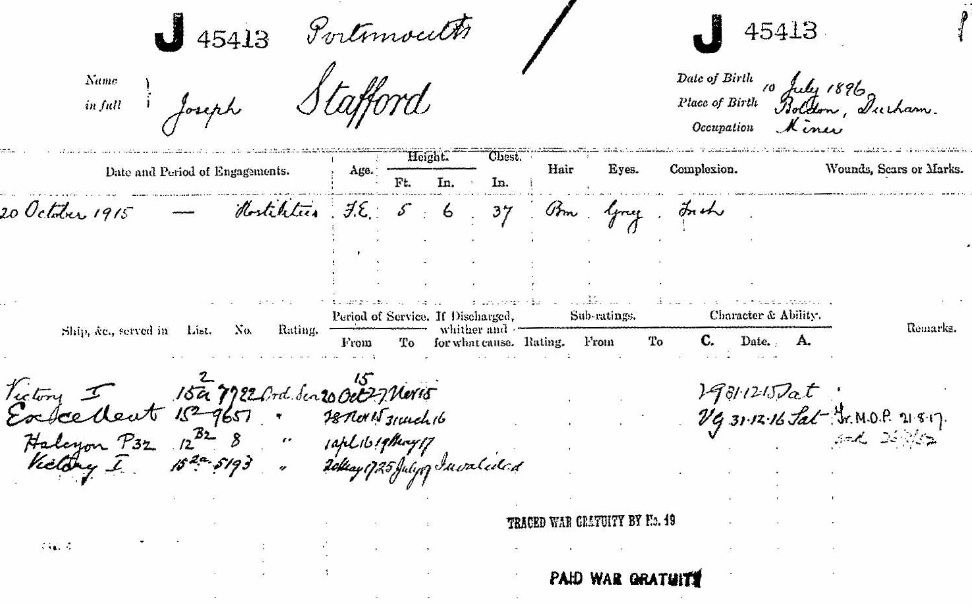 J 45413 Portsmouth J 45413
Name in full Joseph Stafford
Date of Birth 10 July 1896
Place of Birth Boldon, Durham.
Occupation Miner
Date and Period of Engagements. Age. Height. Ft. In. Chest. In. Hair Eyes. Complexion. Wounds, Scars or Marks.
20 October 1915 — Hostilities F.E. 5 6 37 Brn Grey Fresh
Ship, &c., served in List. No. Rating. Period of Service. From To If Discharged, whither and for what cause. Sub-ratings. Rating. From To Character & Ability. C. Date. A. Remarks.
Victory I 15a2 7722 Ord. Sea 20 Oct 15 27 Nov 15 VG 31.12.15 Sat
Excellent 15-2 9657 " 28 Nov 15 31 Mch 16 VG 31.12.16 Sat Tr. M.O.P. 21.8.17.
Halcyon P32 12 B2 8 " 1 Apl 16 19 May 17
Victory I 15 2a 5193 " 20 May 17 25 July 17 Invalided
TRACED WAR GRATUITY BY No. 19
PAID WAR GRATUITY